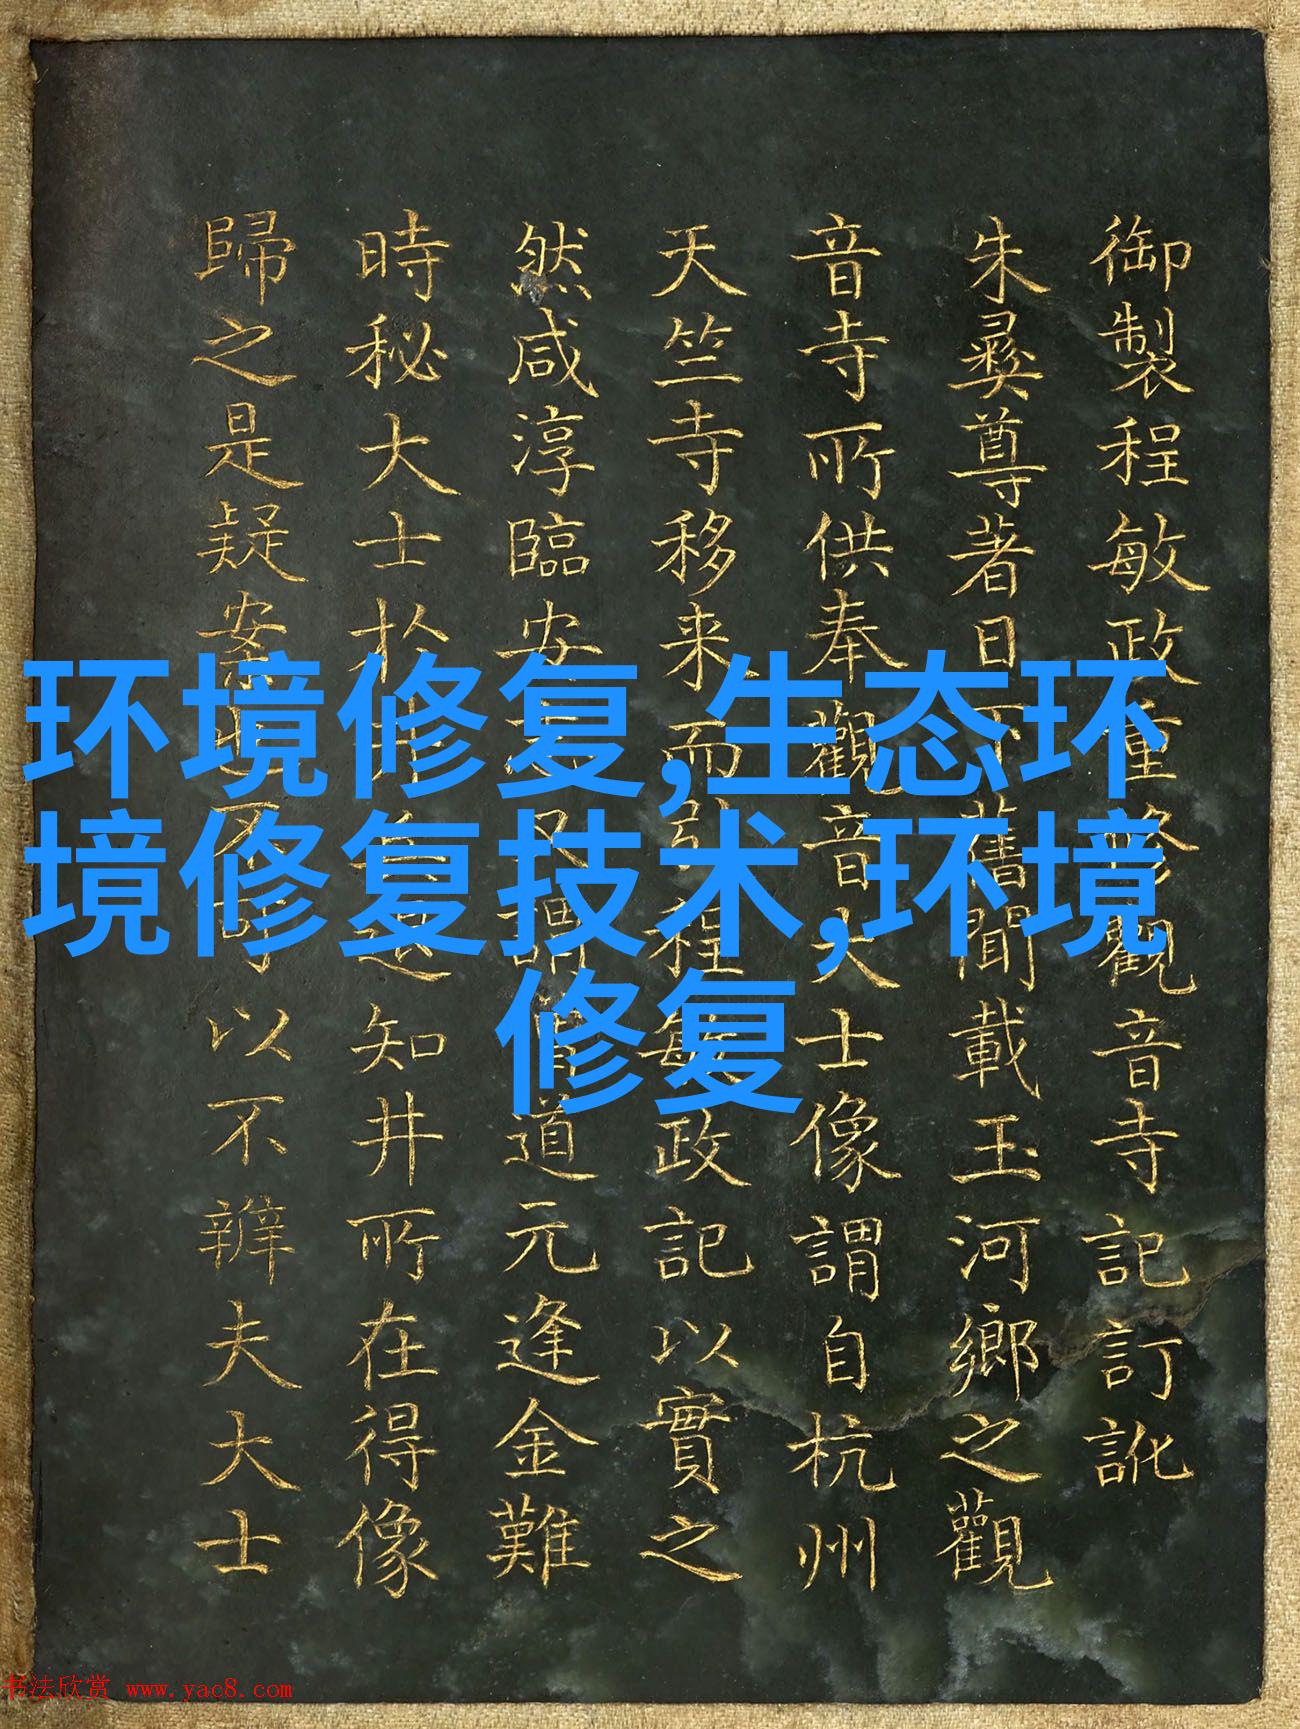 御製程敏政重修觀音寺記訂訛
朱彝尊著日下舊聞載玉河鄉之觀
音寺所供奉觀音大士像謂自杭州
天竺寺移来而引程敏政記以實之
然咸淳臨安謂道元逢金難
時秘大士於井知井所在得像
歸之是疑案也不可以不辨夫大士
环境修复,生态环
境修复技术,环境
修复
书法欣赏 www.yac8.com